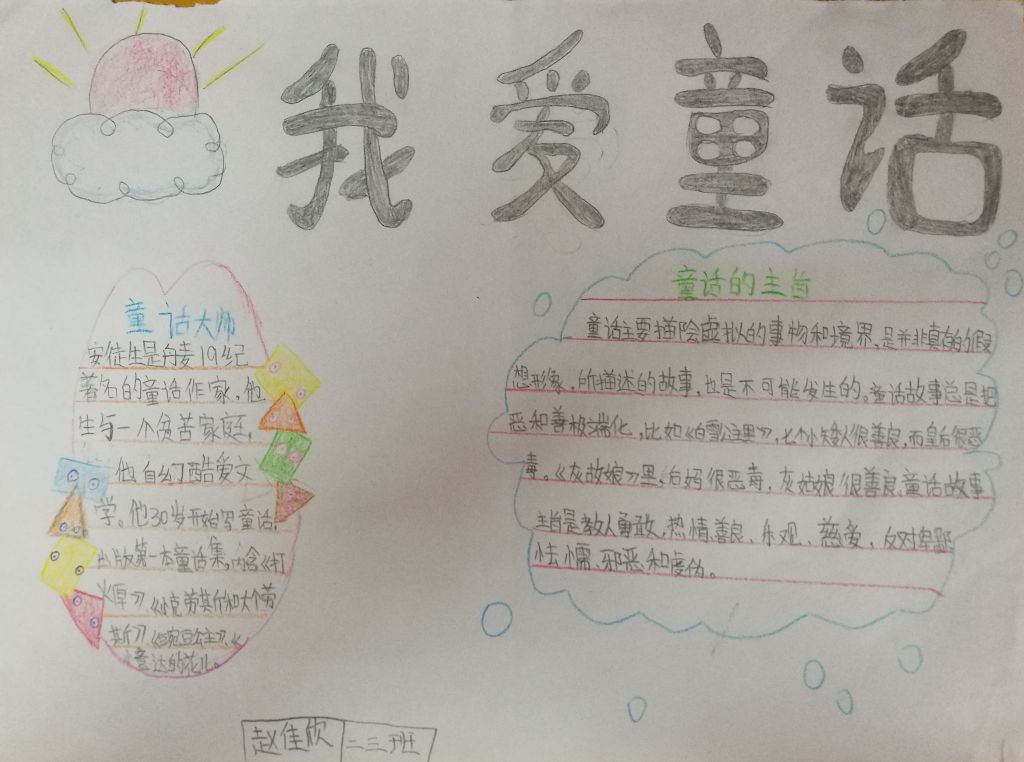 我爱童话
童话大师
安徒生是丹麦19纪
著名的童话作家,他
生与一个贫苦家庭,
他自幻酷爱文
学。他30岁开始写童话,
出版第一本童话集,内含《打
火厚》《小克劳斯和大个劳
斯》《豌豆公主》《
童达的花儿。
童话的主旨
童话主要描险虚拟的事物和境界,是并非真的假
想形象,所描述的故事,也是不可能发生的。童话故事总是把
恶和善极端化,比如《白雪公主里》,七个小矮人很善良,而皇后很恶
毒。《灰故娘》里,后妈很恶毒,灰姑娘很善良童话故事
主旨是教人勇敢、热情、善良、乐观、慈爱,反对卑鄙
怯懦、邪恶和虚伪。
赵佳欣 二三班